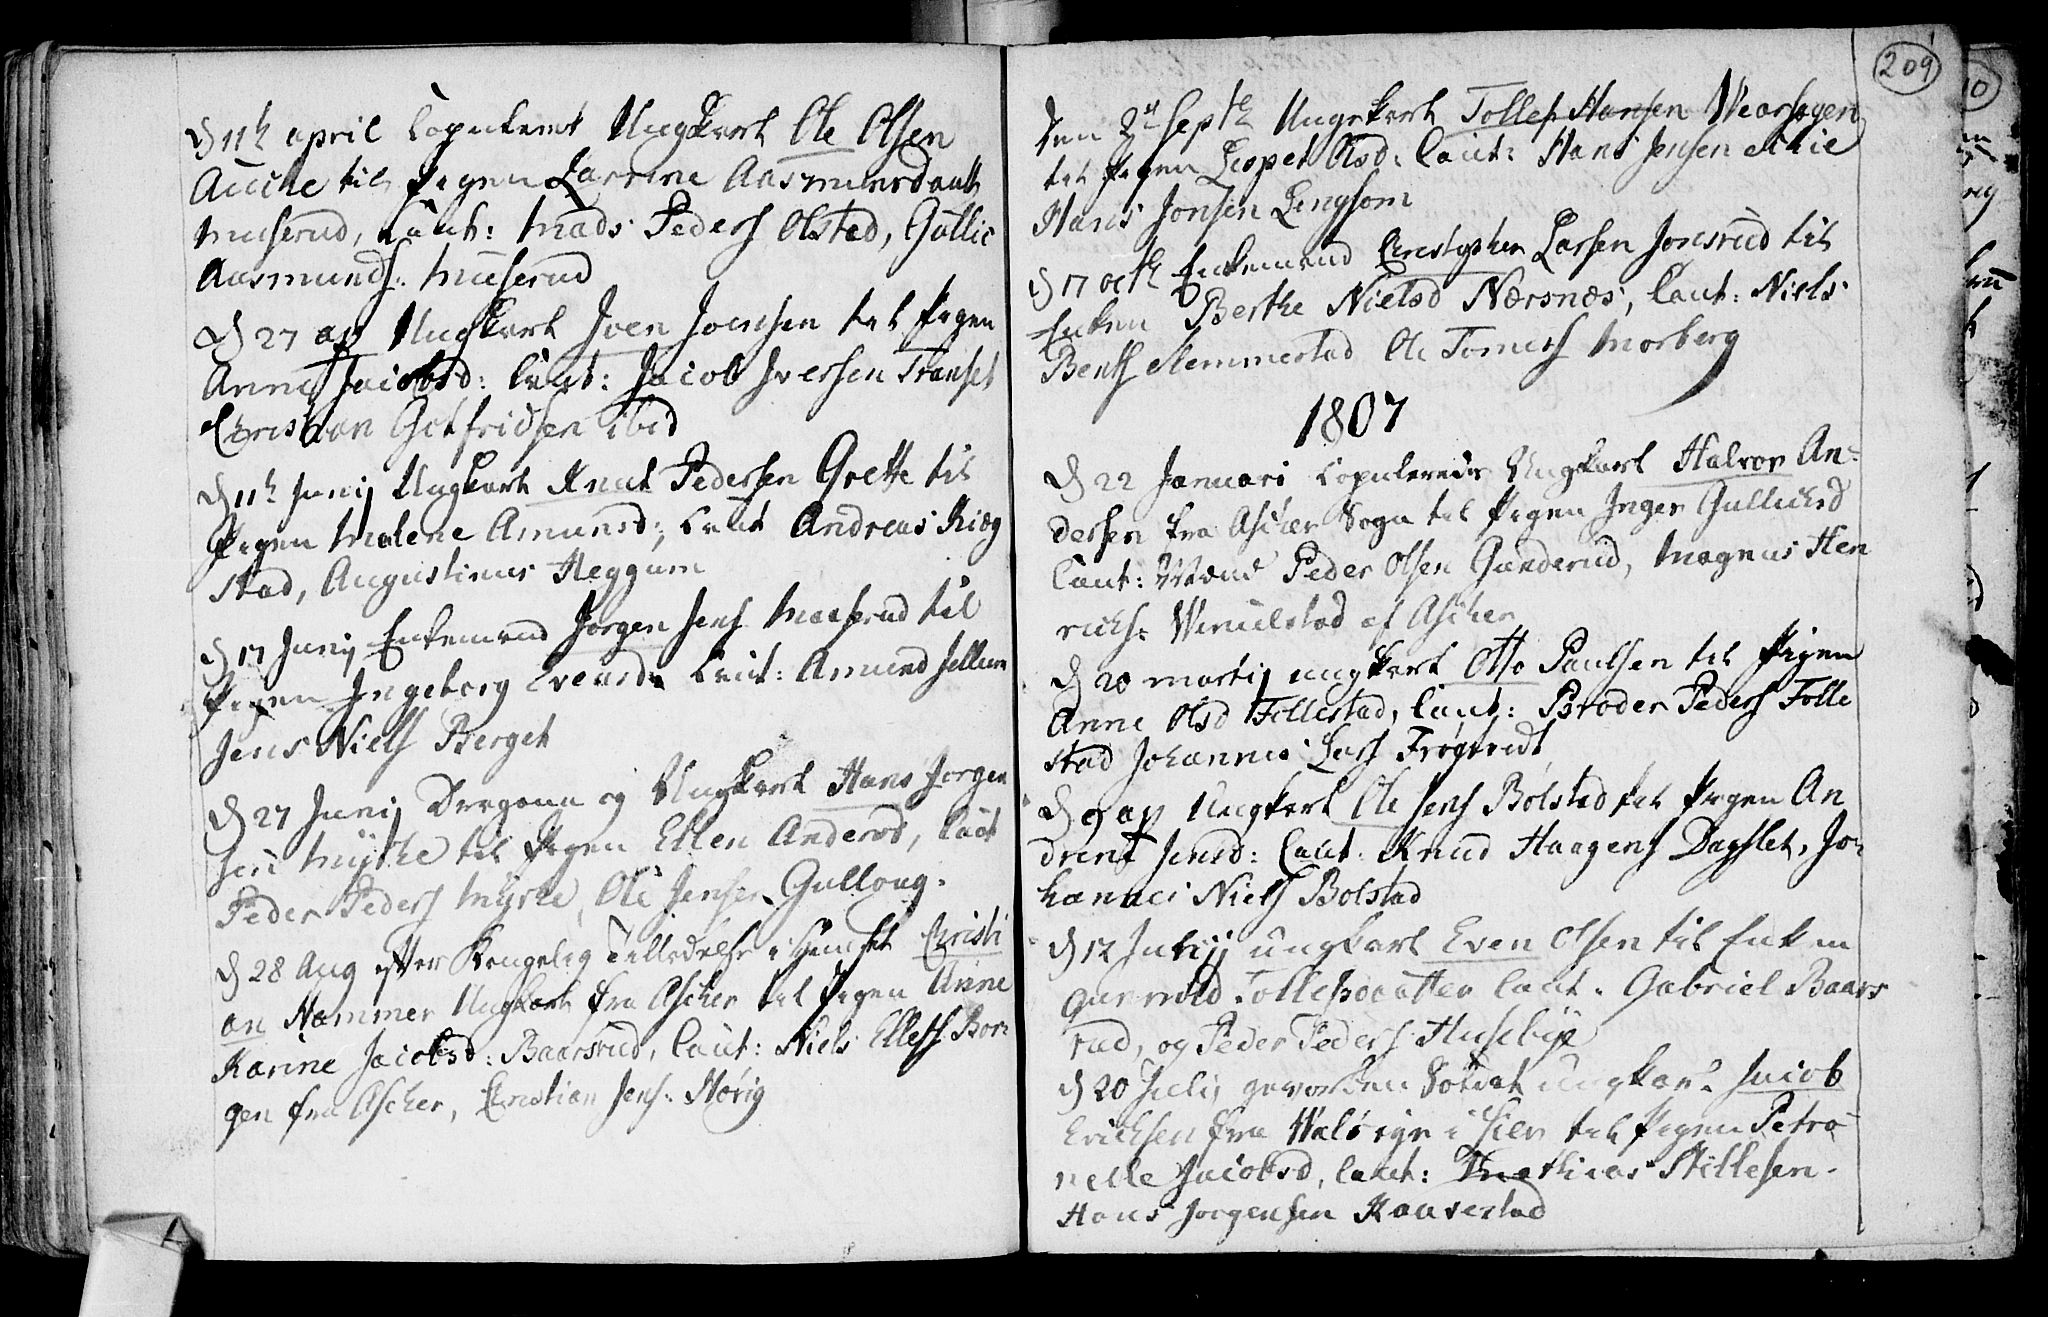 D 11th april Copuleret Ungkarl Ole Olsen
Auche til Pigen Karrine Aasmundsdaatt
Muserud, Caut: Mads Peders Olstad, Gullic
Aasmunds: Muserud
D 27 ap Ungkarl Joen Joensen til Pigen
Anne Jacobsd: Caut: Jacob Iversen Transet
Christian Gotfridsen ibid
D 11th Junij Ungkarl Knut Pedersen Grette til
Pigen Malene Amunsd; Caut Andreas Ring
stad, Augustinus Heggum
D 17 Junij Enkemand Jørgen Jens Muserud til
Pigen Ingeborg Evensd: Caut: Amund
Jens Niels Berget
D 27 Junij Dragoun og Ungkarl Hans Jørgen
sen Myhre til Pigen Ellen Andersd, Caut
Peder Peders Myhre, Ole Jensen Gulloug.
D 28 Aug efter Kongelig Tilladelse i Huuset Christi
an Hammer Ungkarl fra Ascher til Pigen Anne
Karine Jacobsd: Baarsrud, Caut: Niels Ellefs Bor
gen fra Ascher, Christian Jens: Hørig
209
Den 2den Septb Ungkarl Tollef Hansen Wearhogen
til Pigen Lispet Olsd: Caut: Hans Jensen Schie
Hans Jonsen Lingsom
D 17 octb Enkemand Christopher Larsen Jonsrud til
Enken Berthe Nielsd Nærsnæs, Caut: Niels
Bents Slemmestad Ole Tomers Morberg
1807
D 22 Januari Copulerede Ungkarl Halvor An-
dersen fra Ascher Sogn til Pigen Inger Gullichsd
Caut: Peder Olsen Gunderud, Magnus Hen
richs: Wenielstad af Ascher
D 20 Martij ungkarl Otto Paulsen til Pigen
Anne Olsd Follestad, Caut: Broder Peders Folle
stad Johannes Lars Frøgtvedt
D 9 ap Ungkarl Ole Jens Bølstad til Pigen An
drine Jensd: Caut: Knud Haagens Dagslet, Jo-
hannes Niels Bølstad
D 12 Julij ungkarl Even Olsen til Enken
Gunnild Tollefsdaatter Caut. Gabriel Baars
rud, og Peder Peders Husebye
D 20 Juli, geworben Soldat ungkarl Jacob
Erichsen fra Walø i til Pigen Petro-
nelle Jacobsd, Caut: Mathias Stillesen.
Hans Jørgensen Kaavestad